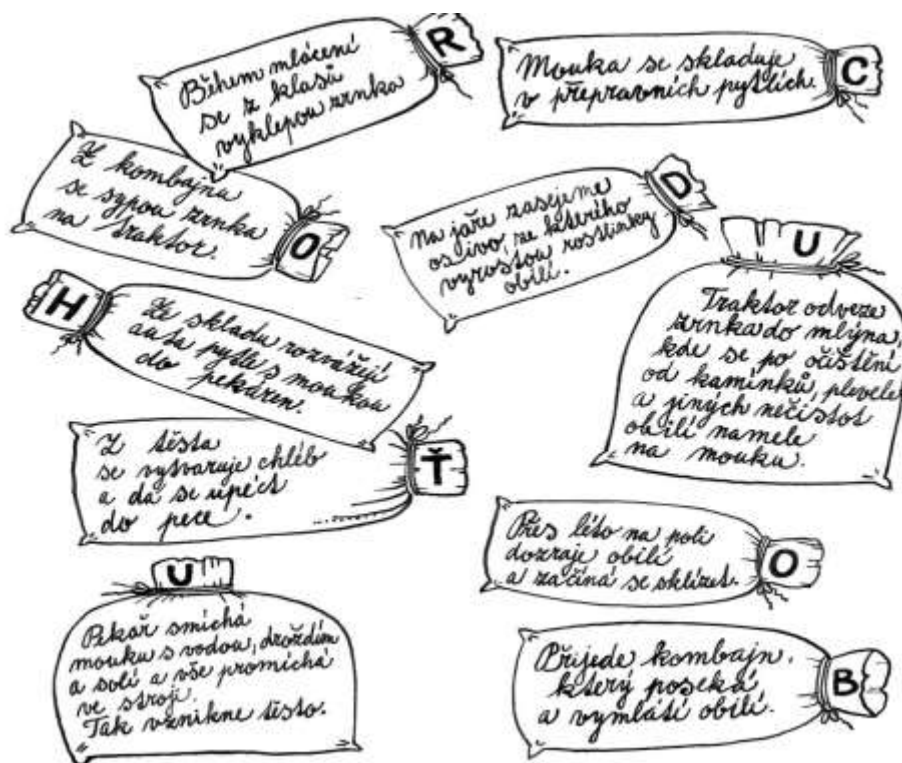 Během mlácení
se z klasů
vyklepou zrnka
R
Mouka se skladuje
v přepravních pytlích.
C
Z kombajnu
se sypou zrnka
na traktor.
O
Na jaře zasejeme
osivo, ze kterého
vyrostou rostlinky
obilí.
D
U
Traktor odveze
zrnka do mlýna,
kde se po očištění
od kamínků, plevele
a jiných nečistot
obilí namele
na mouku.
H
Ze skladu rozvážejí
auta pytle s moukou
do pekáren.
Z těsta
se vytvaruje chléb
a dá se upéct
do pece.
Ť
Přes léto na poli
dozraje obilí
a začíná se sklízet.
O
U
Pekař smíchá
mouku s vodou, droždím
a solí a vše promíchá
ve stroji.
Tak vznikne těsto.
Přijede kombajn,
který poseká
a vymlátí obilí.
B